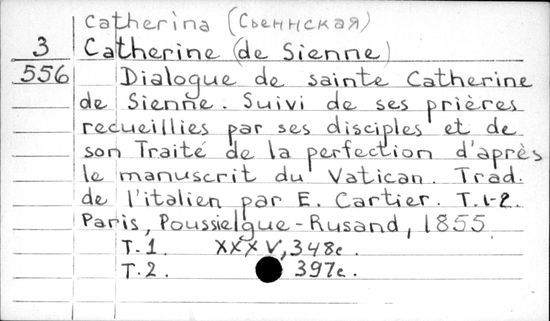 Catherina (Сьеннская)
3 Catherine (de Sienne)
556 Dialogue de sainte Catherine
de Sienne. Suivi de ses prières
recueillies par ses disciples et de
son Traité de la perfection d'après
le manuscrit du Vatican. Trad.
de l'italien par E. Cartier. T. 1-2.
Paris, Poussielgue-Rusand, 1855.
T. 1. XXXV, 348c.
T. 2. 397c.